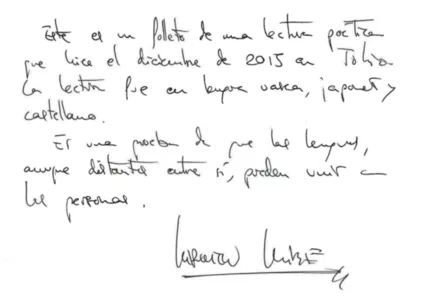 Este es un folleto de una lectura poética
que hice el diciembre de 2015 en Tokio
La lectura fue en lengua vasca, japonés y
castellano.
Es una prueba de que las lenguas,
aunque distantes entre sí, pueden unir a
las personas.